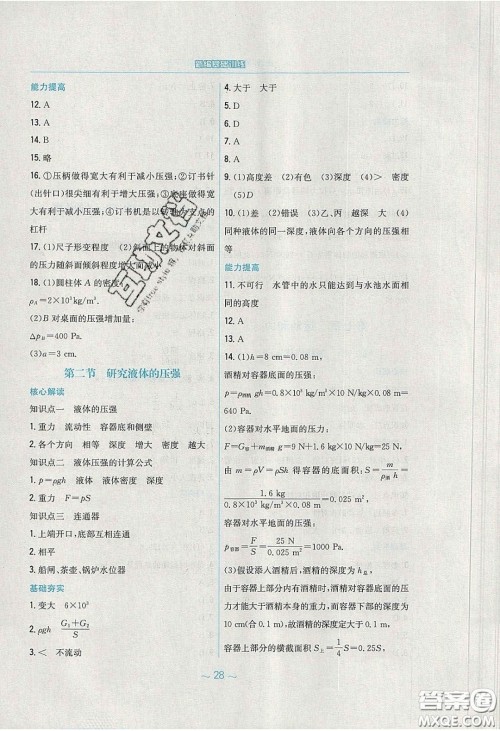 能力提高
12. A
13. A
14. B
15. 略
16. ①压柄做得宽大有利于减小压强;②订书针
(出针口)很尖细有利于增大压强;③底座做得宽
大有利于减小压强;④订书机是以
杠杆
17. (1)尺子形变程度 (2)斜面上的物体对斜面
的压力随斜面倾斜程度增大而减小
18. (1)圆柱体 A 的密度:
ρA=2×10³kg/m³.
(2)B 对桌面的压强增加量:
ΔpB=400 Pa.
(3)a=3 cm.
第二节 研究液体的压强
核心解读
知识点一 液体的压强
1. 重力 流动性 容器底和侧壁
2. 各个方向 相等 深度 增大 密度 越大
知识点二 液体压强的计算公式
1. p=ρgh 液体 液体密度 深度
2. 重力 F=pS
知识点三 连通器
1. 上端开口,底部互相连通
2. 相平
3. 船闸、茶壶、锅炉水位器
基础夯实
1. 变大 6×10³
2. ρgh (G₁+G₂)/S
3. < 不流动
4. 大于 大于
5. D
6. D
7. A
8. A
9. (1)高度差 (2)有色 (3)深度 (4)> 密度
(5)D
10. (1)差 (2)错误 (3)乙、丙 越深 大 (4)
同种液体的同一深度,液体向各个方向的压强相
等
能力提高
11. 不可行 水管中的水只能达到与水池水面相
同的高度
12. A
13. A
14. (1)h=8 cm=0.08 m,
酒精对容器底面的压强:
p=ρ酒精gh=0.8×10³ kg/m³×10 N/kg×0.08 m=
640 Pa.
(2)容器对水平地面的压力:
F=G容+m酒精g=9 N+1.6 kg×10 N/kg=25 N,
由 m=ρV=ρSh 得容器的底面积:S=m酒精/(ρ酒精h)=
1.6 kg/(0.8×10³ kg/m³×0.08 m)=0.025 m²,
容器对水平地面的压强:
p容器=F/S=25 N/0.025 m²=1000 Pa.
(3)假设添入酒精后,酒精的深度为 h
由于容器上部分内有酒精时,酒精对容器底面的压
力才能大于其本身的重力,而深度等于 0.1 m(合
10 cm)时,故酒精的深度定大于 0.1 m.
容器上部分的横截面积 S上=1/4 S=0.25S,
28